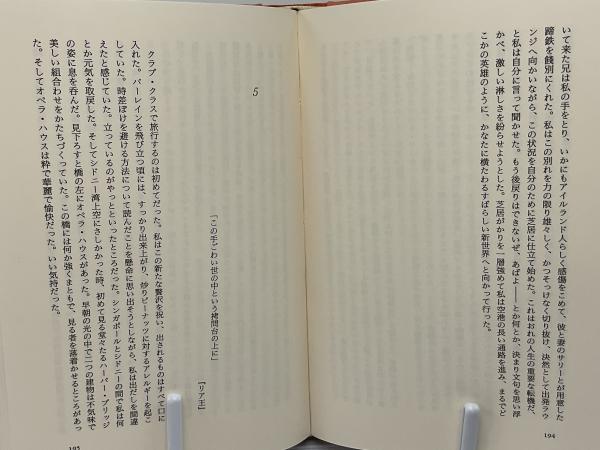 いて来た兄は私の手をとり、いかにもアイルランド人らしく感傷をこめて、彼と妻のサリーとが用意した
蹄鉄を餞別にくれた。私はこの別れを力の限り雄々しく、かつそっけなく切り抜け、決然として出発ラウ
ンジへ向かいながら、この状況を自分のために芝居に仕立て始めた。これはおれの人生の重要な転機だ、
と私は自分に言って聞かせた。もう後戻りはできないぜ、あばよ――とか何とか、決まり文句を思い浮
かべ、激しい淋しさを紛らせようとした。芝居がかりを一層強めて私は空港の長い通路を進み、まるでど
こかの英雄のように、かなたに横たわるすばらしい新世界へと向かって行った。
194
5
「この手ごわい世の中という拷問台の上に」
『リア王』
クラブ・クラスで旅行するのは初めてだった。私はこの新たな贅沢を祝い、出されるものはすべて口に
入れた。バーレインを飛び立つ頃には、すっかり出来上がり、炒りピーナッツに対するアレルギーを起こ
していた。時差ぼけを避ける方法について読んだことを懸命に思い出そうとしながら、私は出だしを間違
えたと感じていた。立っているのがやっとといったところだった。シンガポールとシドニーの間で私は何
とか元気を取戻した。そしてシドニー湾上空にさしかかった時、初めて見る堂々たるハーバー・ブリッジ
の姿に息を呑んだ。見下ろすと橋の左にオペラ・ハウスがあった。早朝の光の中で二つの建物は不気味で
美しい組合わせをかたちづくっていた。この橋には何か強くまともで、見る者を落着かせるところがあっ
た。そしてオペラ・ハウスは粋で華麗で愉快だった。いい気持だった。
195